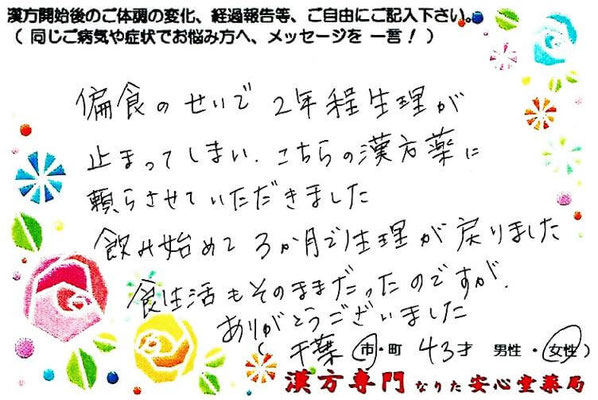 漢方開始後のご体調の変化、経過報告等、ご自由にご記入下さい。
（ 同じご病気や症状でお悩み方へ、メッセージを 一言！ ）
偏食のせいで 2年程生理が
止まってしまい、こちらの漢方薬に
頼らさせていただきました
飲み始めて 3か月で生理が 戻りました
食生活もそのままだったのですが、
ありがとうございました
（ 千葉 市・町 43才 男性・女性 ）
漢方専門 なりた 安心堂薬局